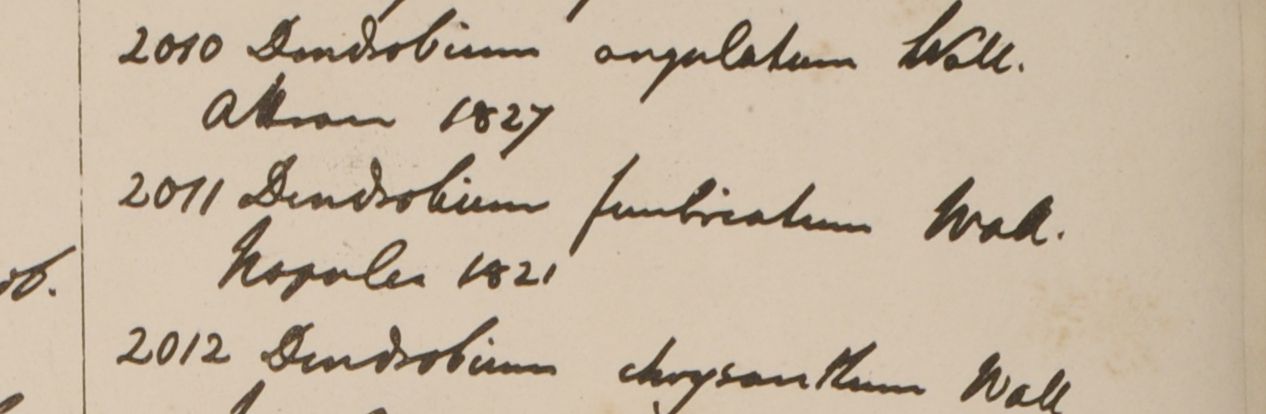 2010 Dendrobium angulatum Wall.
Attran 1827
2011 Dendrobium fimbriatum Wall.
Napalia 1821
ob.
2012 Dendrobium chrysanthum Wall